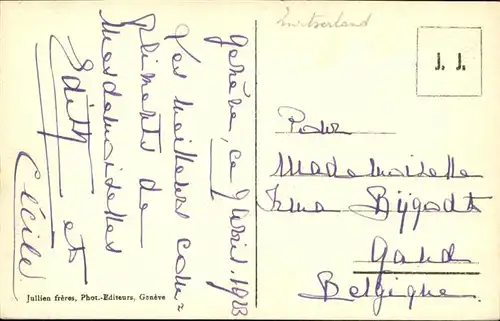 Switzerland
J. J.
Genève, ce 9 Avril 1923
Les meilleurs com=
pliments de
Mesdemoiselles
Edith et
Cécile
Pour
Mademoiselle
Irma Bijgodt
Gand
Belgique
Jullien frères, Phot.-Editeurs, Genève